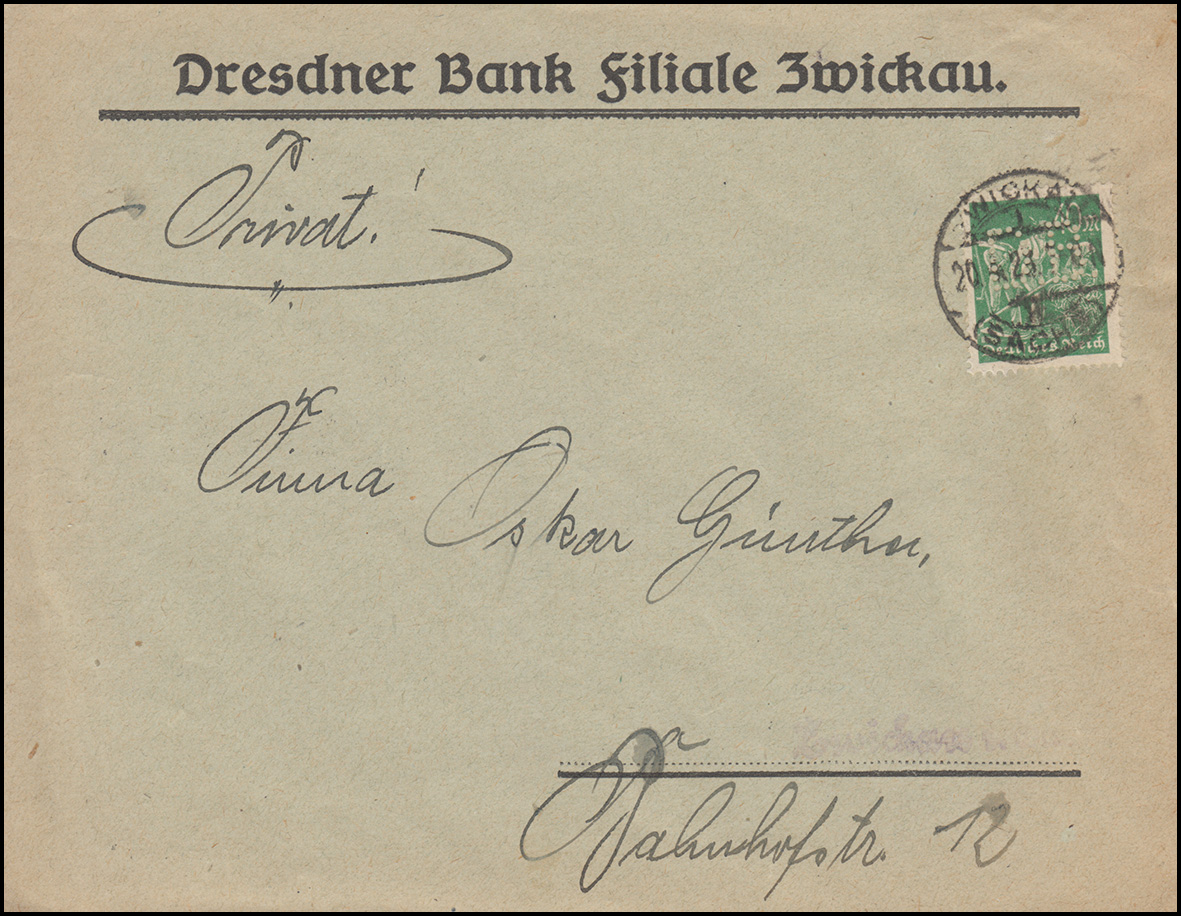 Dresdner Bank Filiale Zwickau.
Privat!
ZWICKAU
40 M
(SACHS)
Deutsches Reich
Firma
Oskar Günther,
Zwickau
Bahnhofstr. 12